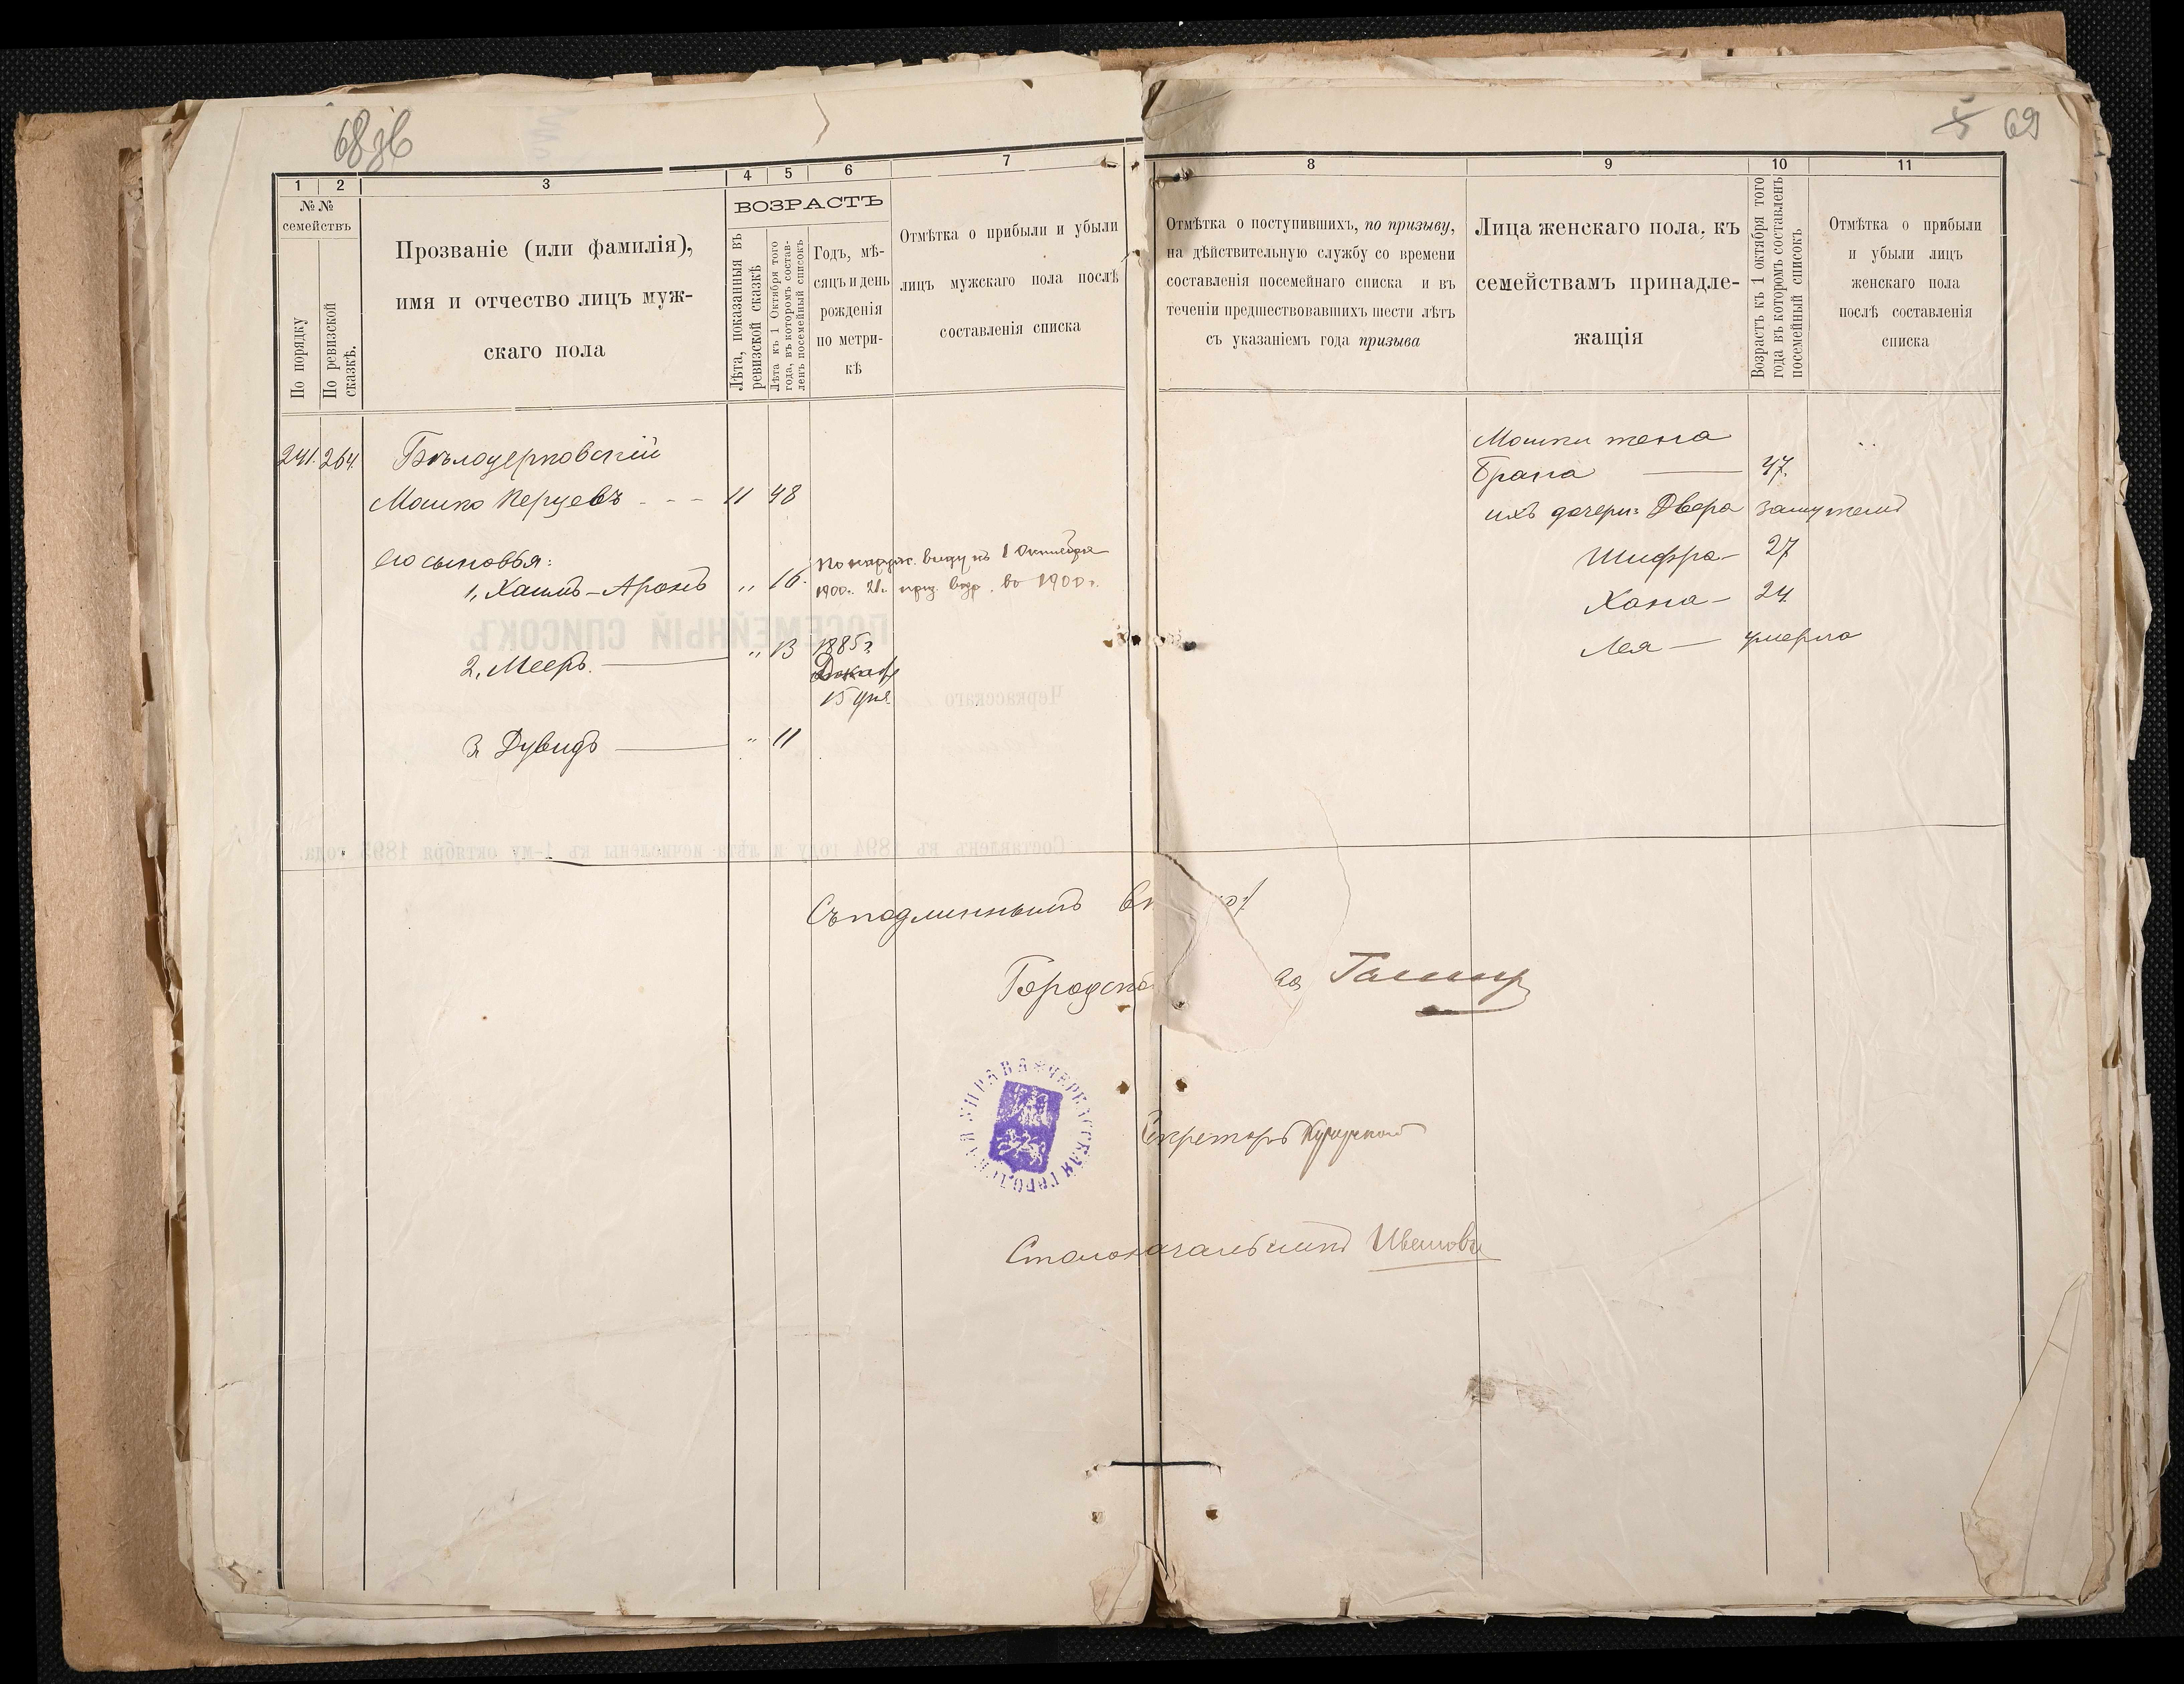 68 зв
5 69
1 2 3 4 5 6 7 8 9 10 11
№№
семействъ
По порядку
По ревизской
сказкѣ.
Прозваніе (или фамилія),
имя и отчество лицъ муж-
скаго пола
ВОЗРАСТЪ
Лѣта, показанныя въ
ревизской сказкѣ
Лѣта къ 1 Октября того
года, въ которомъ состав-
ленъ посемейный списокъ
Годъ, мѣ-
сяцъ и день
рожденія
по метри-
кѣ
Отмѣтка о прибыли и убыли
лицъ мужскаго пола послѣ
составленія списка
Отмѣтка о поступившихъ, по призыву,
на дѣйствительную службу со времени
составленія посемейнаго списка и въ
теченіи предшествовавшихъ шести лѣтъ
съ указаніемъ года призыва
Лица женскаго пола, къ
семействамъ принадле-
жащія
Возрастъ къ 1 октября того
года въ которомъ составленъ
посемейный списокъ
Отмѣтка о прибыли
и убыли лицъ
женскаго пола
послѣ составленія
списка
241. 264. Бѣлоцерковскій
Мошко Перцевъ - - - 11 48
его сыновья:
1, Хаимъ-Аронъ „ 16.
По наружн. виду къ 1 Октября
1900 г. 21 г. приз. возр. въ 1900 г.
2, Мееръ. „ 13 1885 г.
15 дня
3, Дувидъ „ 11
Мошки жена
Брана 47.
ихъ дочери: Двера замужемъ
Шифра 27
Хана 24
Лея умерла
ПОСЕМЕЙНЫЙ СПИСОКЪ
Черкасскаго
Составленъ въ 1894 году и лѣта исчислены къ 1-му октября 1895 года.
Съ подлиннымъ
Городско
Секретарь
Столоначальникъ
УПРАВА ЧЕРКАССКАЯ ГОРОДСКАЯ